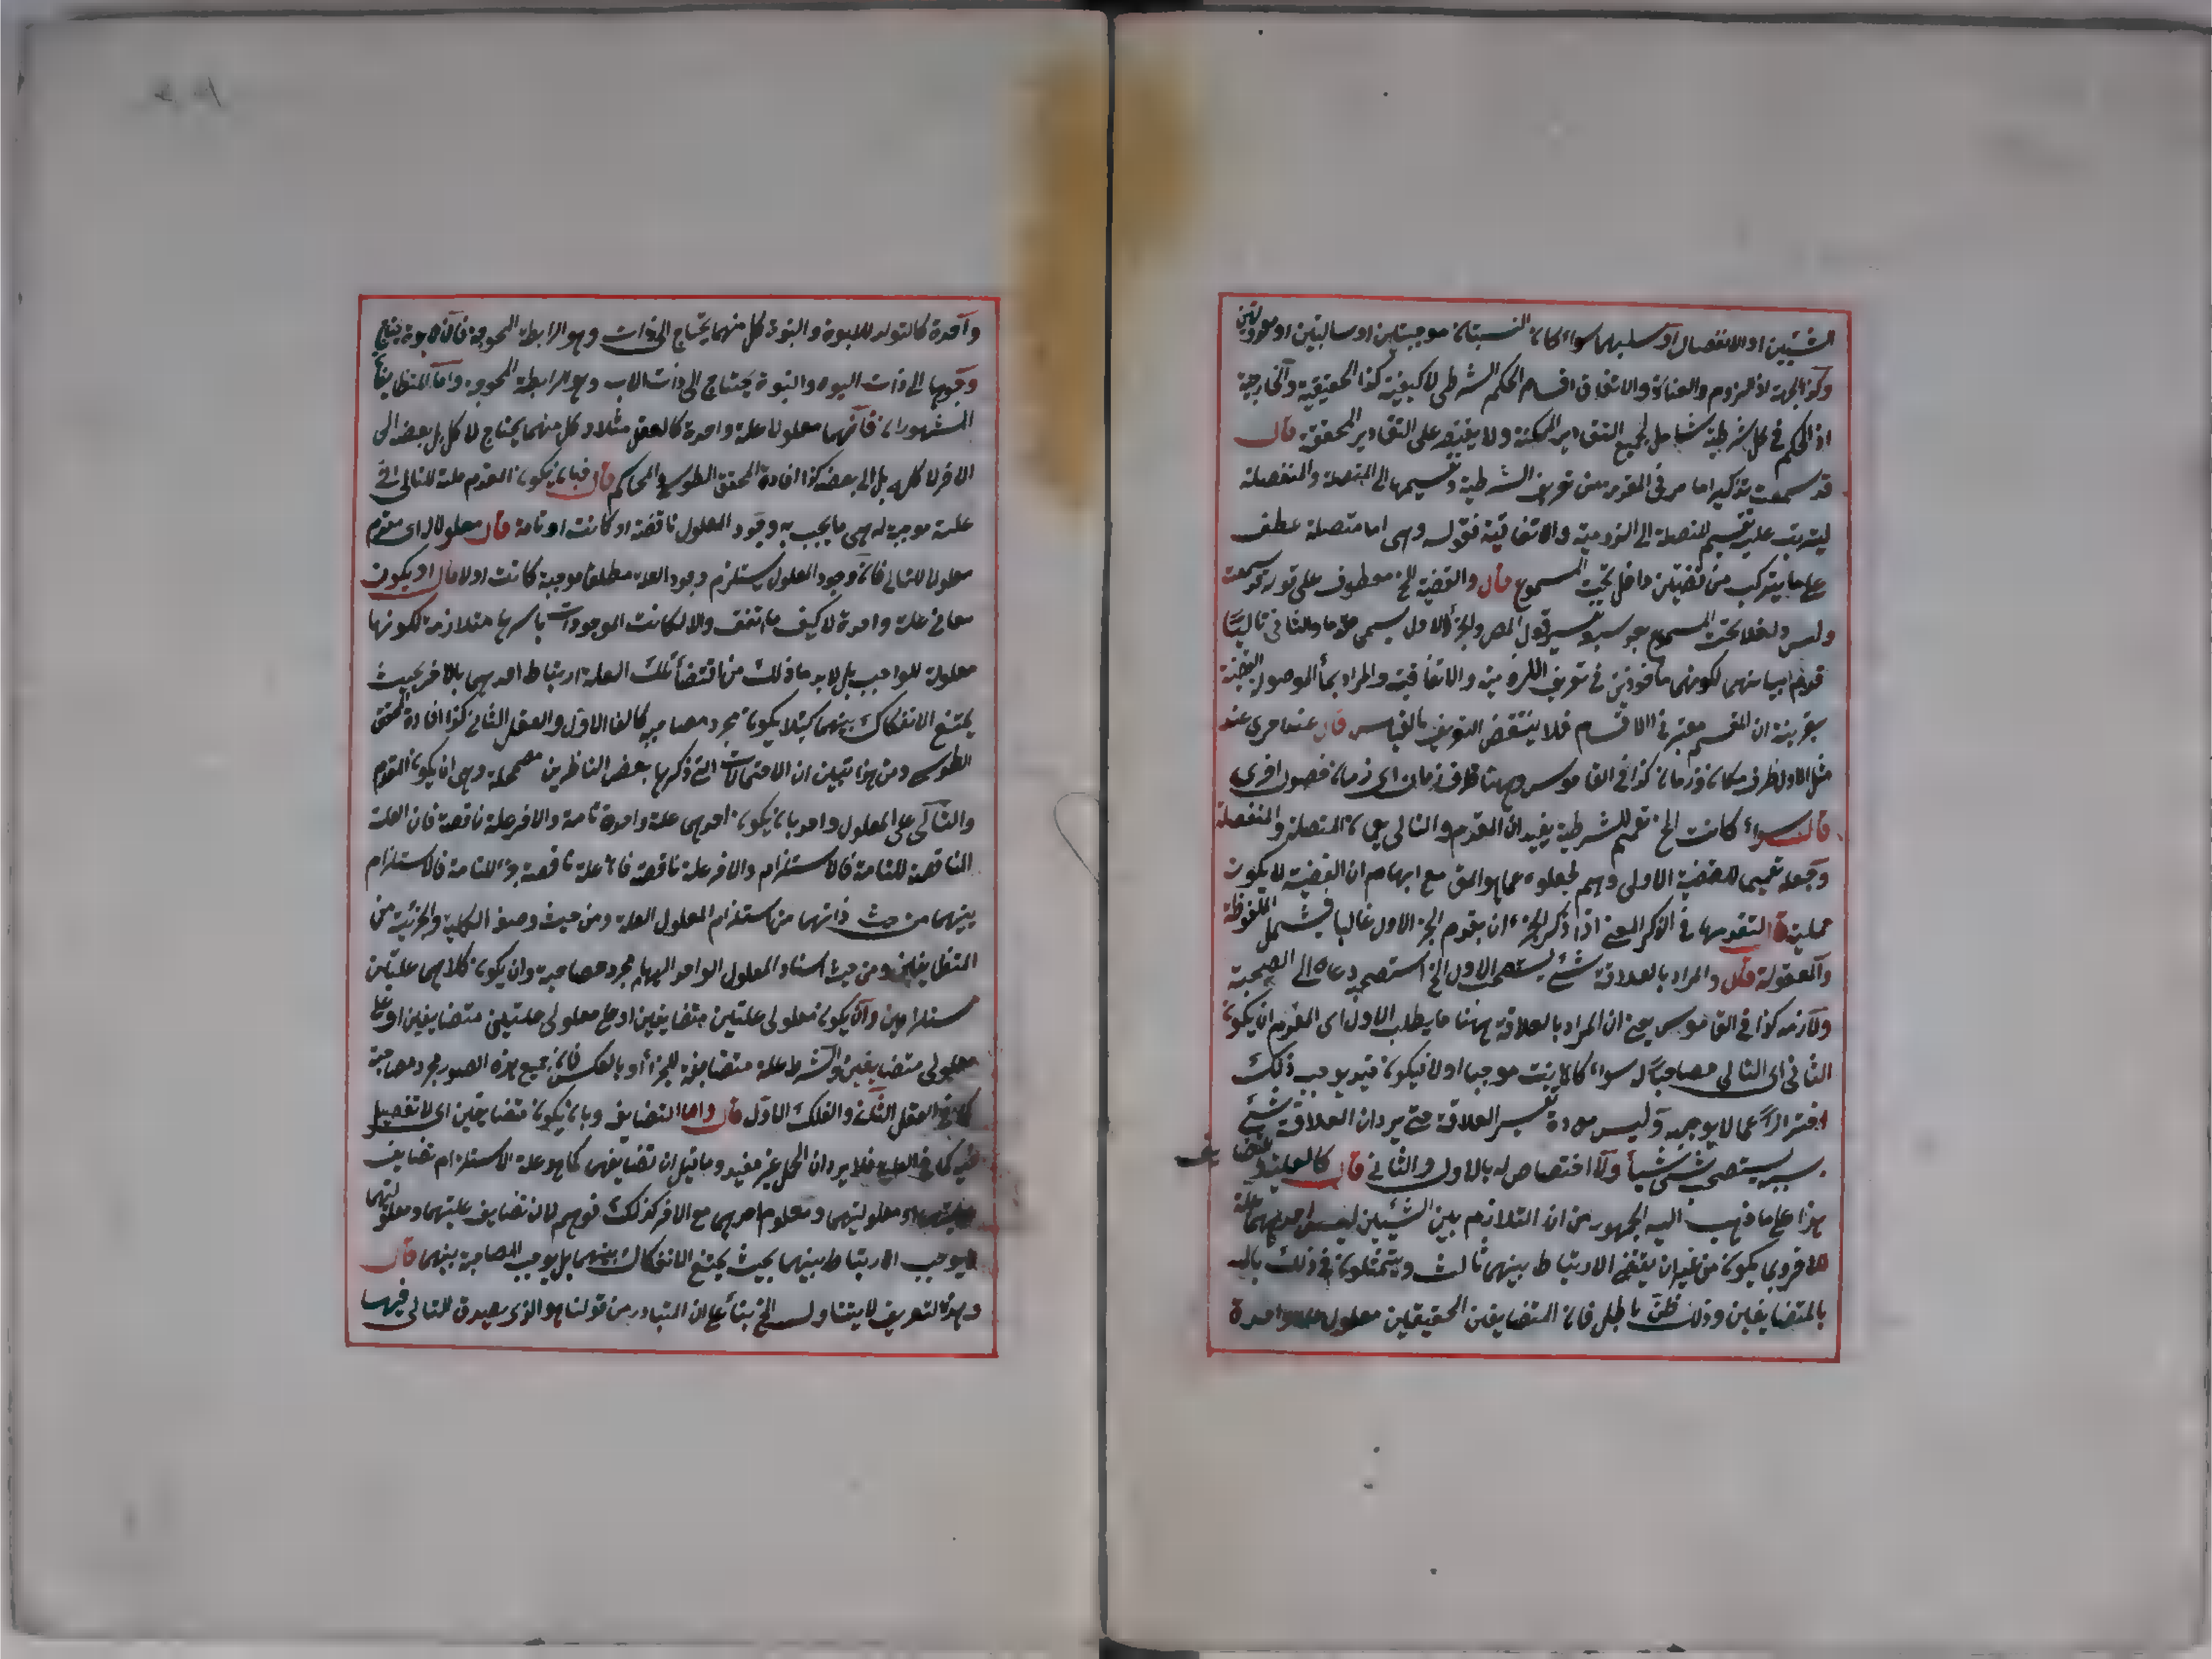 الشيئين او الانفصال او سلبهما سواء كان النسبتان موجبتين او سالبتين او معدولتين
وكذا الجهة لان اللزوم والعناد والاتفاق اقسام الحكم الشرطي لا كيفية كذا الحقيقية والخارجية
اذ الحكم في كل شرطية شامل لجميع التقادير الممكنة ولا يقتصر على التقادير المحققة قال
قد سمعت تذكير لما مر في المقدمة من تعريف الشرطية وتقسيمها الى المتصلة والمنفصلة
ليترتب عليه تقسيم المتصلة الى اللزومية والاتفاقية فقوله وهي اما متصلة عطف
على ما يتركب من قضيتين داخل تحت المسموع قال والقضية الخ معطوف على قوله قد سمعت
وليس داخلا تحت المسموع قول المص والجزء الاول يسمى مقدما والثاني تاليا
قدم لكونهما مأخوذين في تعريف اللزومية والاتفاقية والمراد بما الموصولة القضية
بقرينة ان المقسم معتبر في الاقسام فلا ينتقض التعريف بالقياس قال عند اخرى عند
مثل الاول ظرف مكان وزمان كذا في القاموس وههنا ظرف زمان اى زمان حصول اخرى
قال سواء كانت الخ تعميم للشرطية يفيد ان المقدم والتالي يعمان المتصلة والمنفصلة
وجعله تعميما للقضية الاولى وهم لخلوه عما هو الحق مع ايهام ان القضية لا يكون
حملية قال لتقدمها في الذكر يعنى اذا ذكر الجزء ان يقدم الجزء الاول غالبا فيشمل الملفوظة
والمعقولة قال والمراد بالعلاقة شئ يستصحب الاول الخ استصحبه دعاه الى الصحبة
ولازمه كذا في القاموس يعنى ان المراد بالعلاقة ههنا ما يطلب الاول اى المقدم ان يكون
الثاني اى التالي مصاحبا له سواء كانت موجبا او لا فيكون قيد يوجب ذلك
احترازا عما لا يوجبه وليس تفسير العلاقة حتى يرد ان العلاقة شئ
يستصحب شئ شيأ ولا اختصاص له بالاول والثاني قال كالعلية والتضايف
هذا على ما ذهب اليه الجمهور من ان التلازم بين الشيئين ليس احدهما علة
للاخر وربما يكون من غير ان يقتضى الارتباط بينهما ثالث ويتمثلون في ذلك
بالمتضايفين وذلك ظن باطل فان المتضايفين الحقيقيين معلول علة واحدة
واحدة كالتولد للابوة والبنوة كل منهما يحتاج الى ذات وهو الرابطة المحوجة فان الابوة يحتاج
وجودها الى ذات البنوة والبنوة يحتاج الى ذات الاب وهو الرابطة المحوجة واما المتضايفان
المشهوران فانهما معلولا علة واحدة كالعقل مثلا وكل منهما يحتاج لا كل بل بعضه الى
الاخر لا كله بل الى بعضه كذا افاده المحقق الطوسي في المحاكم قال فبان يكون المقدم علة للتالي اى
علة موجبة له هى ما يجب به وجود المعلول ناقصة او كانت او تامة قال معلولا له اى مقدم
معلولا للتالي فان وجود المعلول يستلزم وجود العلة مطلقا موجبة كانت اولا قال او يكون
معا في علة واحدة لا كيف ما اتفق والا لكانت الموجودات باسرها متلازمة لكونها
معلولة للواجب بل لا بد مع ذلك من اقتضاء تلك العلة ارتباط احدهما بالاخر بحيث
يمتنع الانفكاك بينهما كيلا يكون مجرد مصاحبة كالفلك الاول والعقل الثاني كذا افاده المحقق
الطوسي ومن هذا تبين ان الاحتمالات التى ذكرها بعض الناظرين مضمحلة وهى ان يكون المقدم
والتالي على المعلول واحد بان يكون احدهما علة واحدة تامة والاخر علة ناقصة فان العلة
الناقصة للتامة فالاستلزام والاخر علة ناقصة فان علة ناقصة جزء للتامة فالاستلزام
بينهما من حيث ذاتهما من استلزام المعلول العلة ومن حيث وصف الكلية والجزئية من
المتضايفين ومن حيث اسناد المعلول الواحد اليهما مجرد مصاحبة وان يكون كلاهما علتين
مستلزمين وان يكون معلولى علتين متضايفين او على معلولى علتين متضايفين او على
معلولى متضايفين والشرط علة متضايفة للجزاء او بالعكس فان جميع هذه الصور مجرد مصاحبة
كما في العقل الثاني والفلك الاول قال واما التضايف وبان يكون متضايفين اى لا تفصيل
فيه كما في العلية فلا يرد ان الحمل غير مفيد وما قيل ان تضايفهما كما هو علة الاستلزام تضايف
عليتهما ومعلوليتهما ومعلوم احدهما مع الاخر كذلك توهم لان تضايف عليتهما ومعلوليتهما
لا يوجب الارتباط بينهما بحيث يمتنع الانفكاك بينهما بل يوجب المصاحبة بينهما قال
وهذا التعريف لا يتناول الخ بناء على ان المتبادر من قولنا هو الذى يصدق التالي فيها